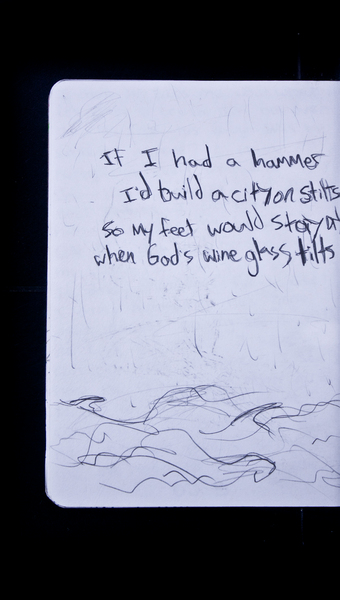 If I had a hammer
I'd build a city on stilts
So my feet would stay
when God's wine glass tilts